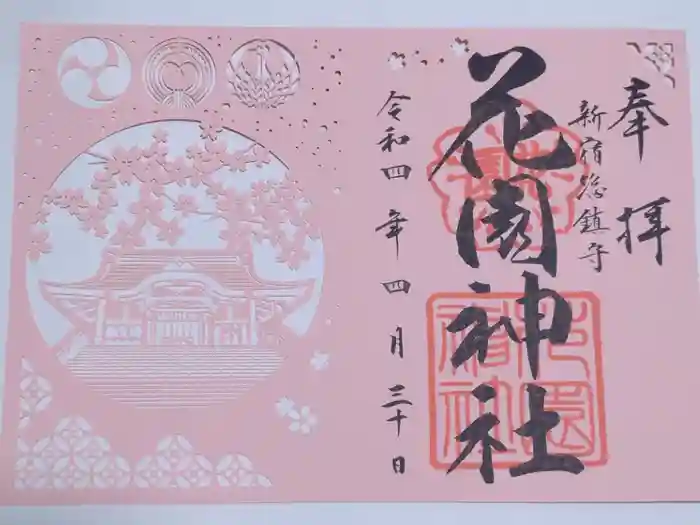 奉拝
新宿総鎮守
花園神社
令和四年四月三十日